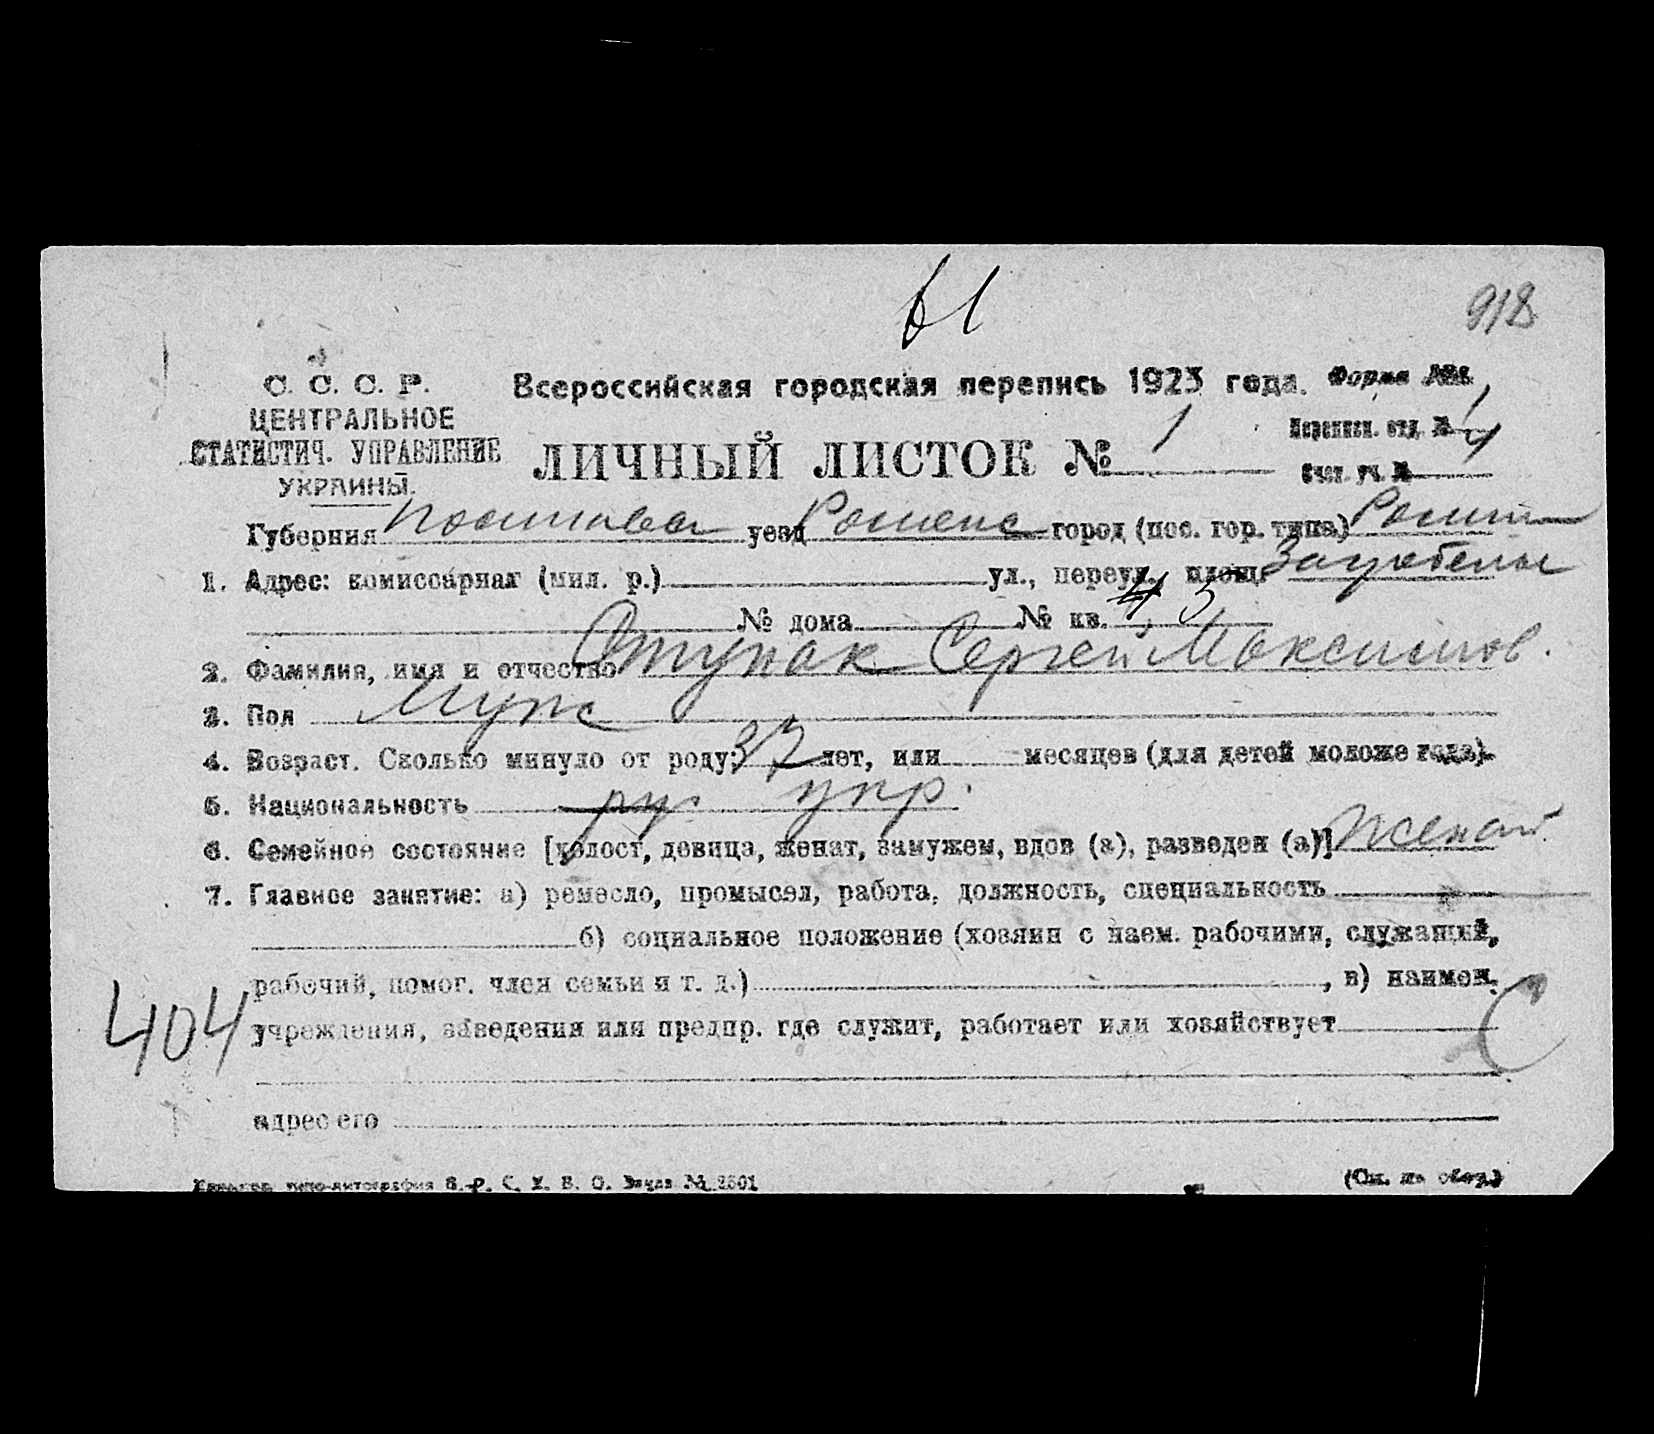 61
918
С. С. С. Р.
ЦЕНТРАЛЬНОЕ
СТАТИСТИЧ. УПРАВЛЕНИЕ
УКРАИНЫ.
Всероссийская городская перепись 1923 года. Форма №
Переписн. отд. № 1
ЛИЧНЫЙ ЛИСТОК № 1
Счет. уч. № 4
Губерния Полтавская уезд Роменс город (пос. гор. типа) Ромны
1. Адрес: комиссариат (мил. р.) ул., переул., площ.
№ дома № кв. 4, 5
2. Фамилия, имя и отчество Ступак Сергей Максимов.
3. Пол Муж
4. Возраст. Сколько минуло от роду: 37 лет, или месяцев (для детей моложе года).
5. Национальность рус укр.
6. Семейное состояние [холост, девица, женат, замужем, вдов (а), разведен (а)] Женат
7. Главное занятие: а) ремесло, промысел, работа, должность, специальность
б) социальное положение (хозяин с наем. рабочими, служащий,
рабочий, помог. член семьи и т. д.) , в) наимен.
404
учреждения, заведения или предпр. где служит, работает или хозяйствует
С
адрес его
типо-литография В. Р. С. У. В. О. Заказ № 2601
(См. на обор.)